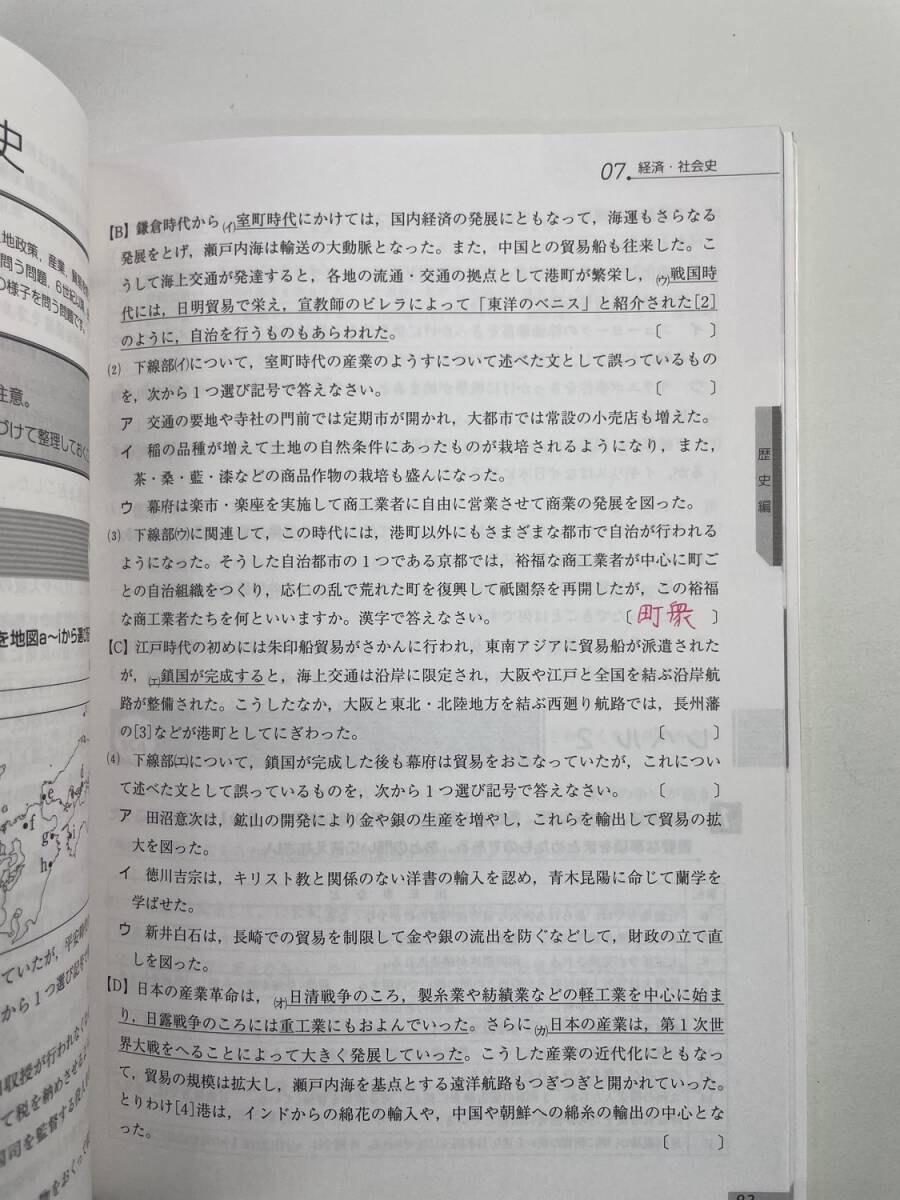 史
地政策，産業，貿
問う問題，6世紀以
の様子を問う問題です。
注意。
づけて整理しておく
を地図a～iから選び
e
f
g
i
h
ていたが，平安時
から1つ選び記号で
収授が行われなくな
て税を納めさせるよ
国司を監督する役人
物をおくって
07. 経済・社会史
【B】鎌倉時代から(イ)室町時代にかけては，国内経済の発展にともなって，海運もさらなる
発展をとげ，瀬戸内海は輸送の大動脈となった。また，中国との貿易船も往来した。こ
うして海上交通が発達すると，各地の流通・交通の拠点として港町が繁栄し，(ウ)戦国時
代には，日明貿易で栄え，宣教師のビレラによって「東洋のベニス」と紹介された[2]
のように，自治を行うものもあらわれた。〔　　〕
(2) 下線部(イ)について，室町時代の産業のようすについて述べた文として誤っているもの
を，次から1つ選び記号で答えなさい。〔　　〕
ア 交通の要地や寺社の門前では定期市が開かれ，大都市では常設の小売店も増えた。
イ 稲の品種が増えて土地の自然条件にあったものが栽培されるようになり，また，
茶・桑・藍・漆などの商品作物の栽培も盛んになった。
ウ 幕府は楽市・楽座を実施して商工業者に自由に営業させて商業の発展を図った。
(3) 下線部(ウ)に関連して，この時代には，港町以外にもさまざまな都市で自治が行われる
ようになった。そうした自治都市の1つである京都では，裕福な商工業者が中心に町ご
との自治組織をつくり，応仁の乱で荒れた町を復興して祇園祭を再開したが，この裕福
な商工業者たちを何といいますか。漢字で答えなさい。〔 町衆 〕
【C】江戸時代の初めには朱印船貿易がさかんに行われ，東南アジアに貿易船が派遣された
が，(エ)鎖国が完成すると，海上交通は沿岸に限定され，大阪や江戸と全国を結ぶ沿岸航
路が整備された。こうしたなか，大阪と東北・北陸地方を結ぶ西廻り航路では，長州藩
の[3]などが港町としてにぎわった。〔　　〕
(4) 下線部(エ)について，鎖国が完成した後も幕府は貿易をおこなっていたが，これについ
て述べた文として誤っているものを，次から1つ選び記号で答えなさい。〔　　〕
ア 田沼意次は，鉱山の開発により金や銀の生産を増やし，これらを輸出して貿易の拡
大を図った。
イ 徳川吉宗は，キリスト教と関係のない洋書の輸入を認め，青木昆陽に命じて蘭学を
学ばせた。
ウ 新井白石は，長崎での貿易を制限して金や銀の流出を防ぐなどして，財政の立て直
しを図った。
【D】日本の産業革命は，(オ)日清戦争のころ，製糸業や紡績業などの軽工業を中心に始ま
り，日露戦争のころには重工業にもおよんでいった。さらに(カ)日本の産業は，第1次世
界大戦をへることによって大きく発展していった。こうした産業の近代化にともなっ
て，貿易の規模は拡大し，瀬戸内海を基点とする遠洋航路もつぎつぎと開かれていった。
とりわけ[4]港は，インドからの綿花の輸入や，中国や朝鮮への綿糸の輸出の中心とな
った。〔　　〕
歴史編